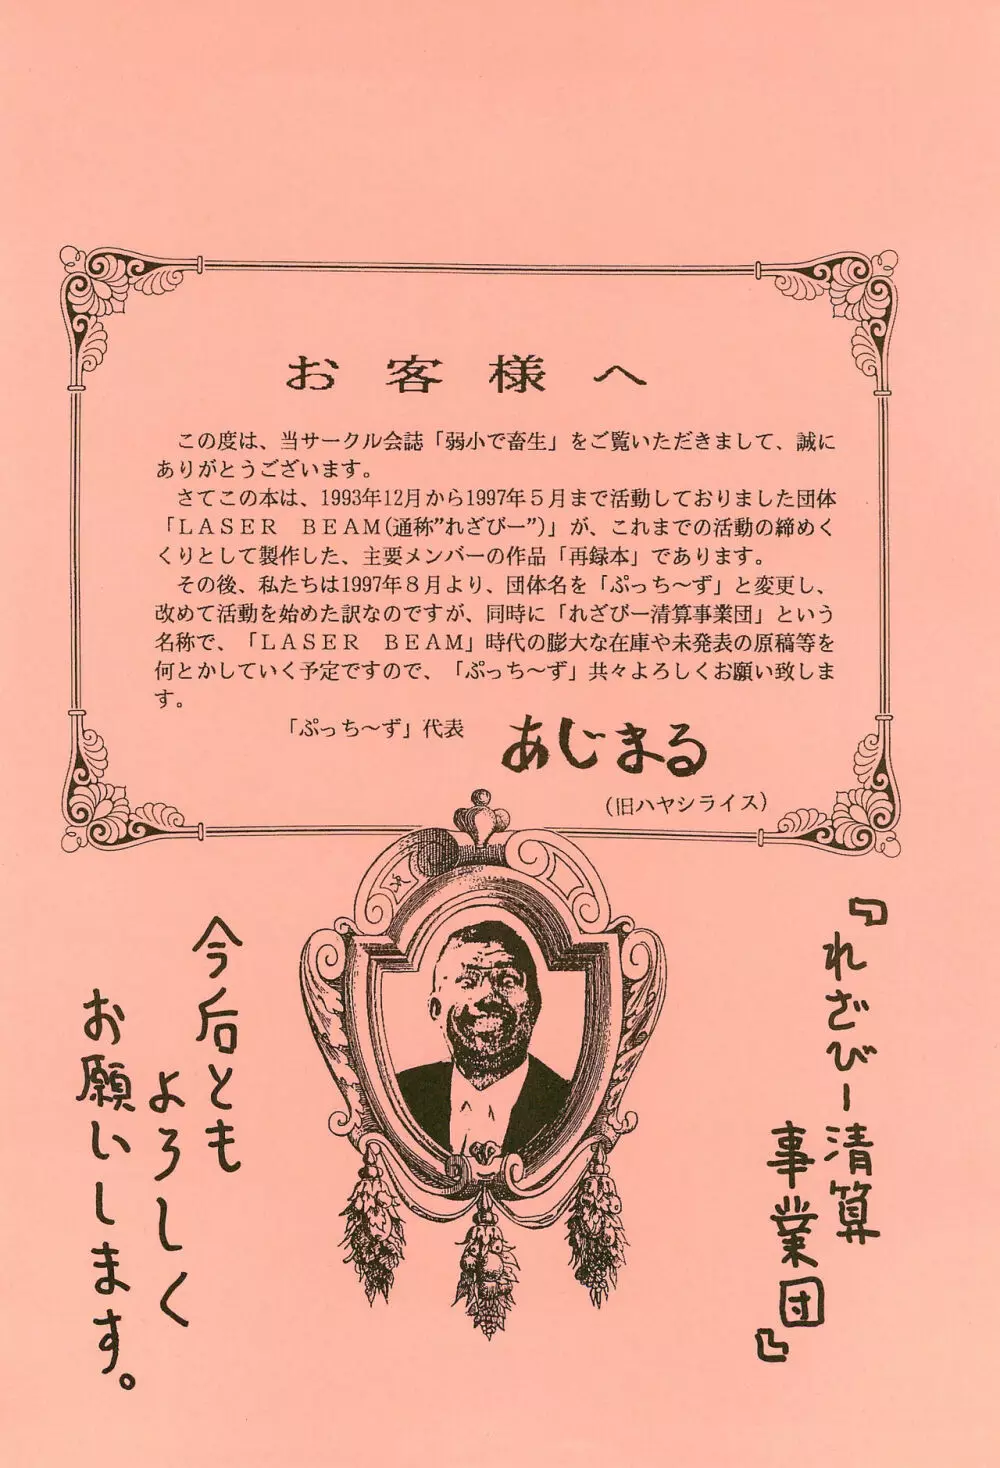 お客様へ
この度は、当サークル会誌「弱小で畜生」をご覧いただきまして、誠に
ありがとうございます。
さてこの本は、1993年12月から1997年５月まで活動しておりました団体
「ＬＡＳＥＲ　ＢＥＡＭ(通称”れざびー”)」が、これまでの活動の締めく
くりとして製作した、主要メンバーの作品「再録本」であります。
その後、私たちは1997年８月より、団体名を「ぷっち〜ず」と変更し、
改めて活動を始めた訳なのですが、同時に「れざびー清算事業団」という
名称で、「ＬＡＳＥＲ　ＢＥＡＭ」時代の膨大な在庫や未発表の原稿等を
何とかしていく予定ですので、「ぷっち〜ず」共々よろしくお願い致しま
す。
「ぷっち〜ず」代表
あじまる
(旧ハヤシライス)
『れざびー清算
事業団』
今后とも
よろしく
お願いします。